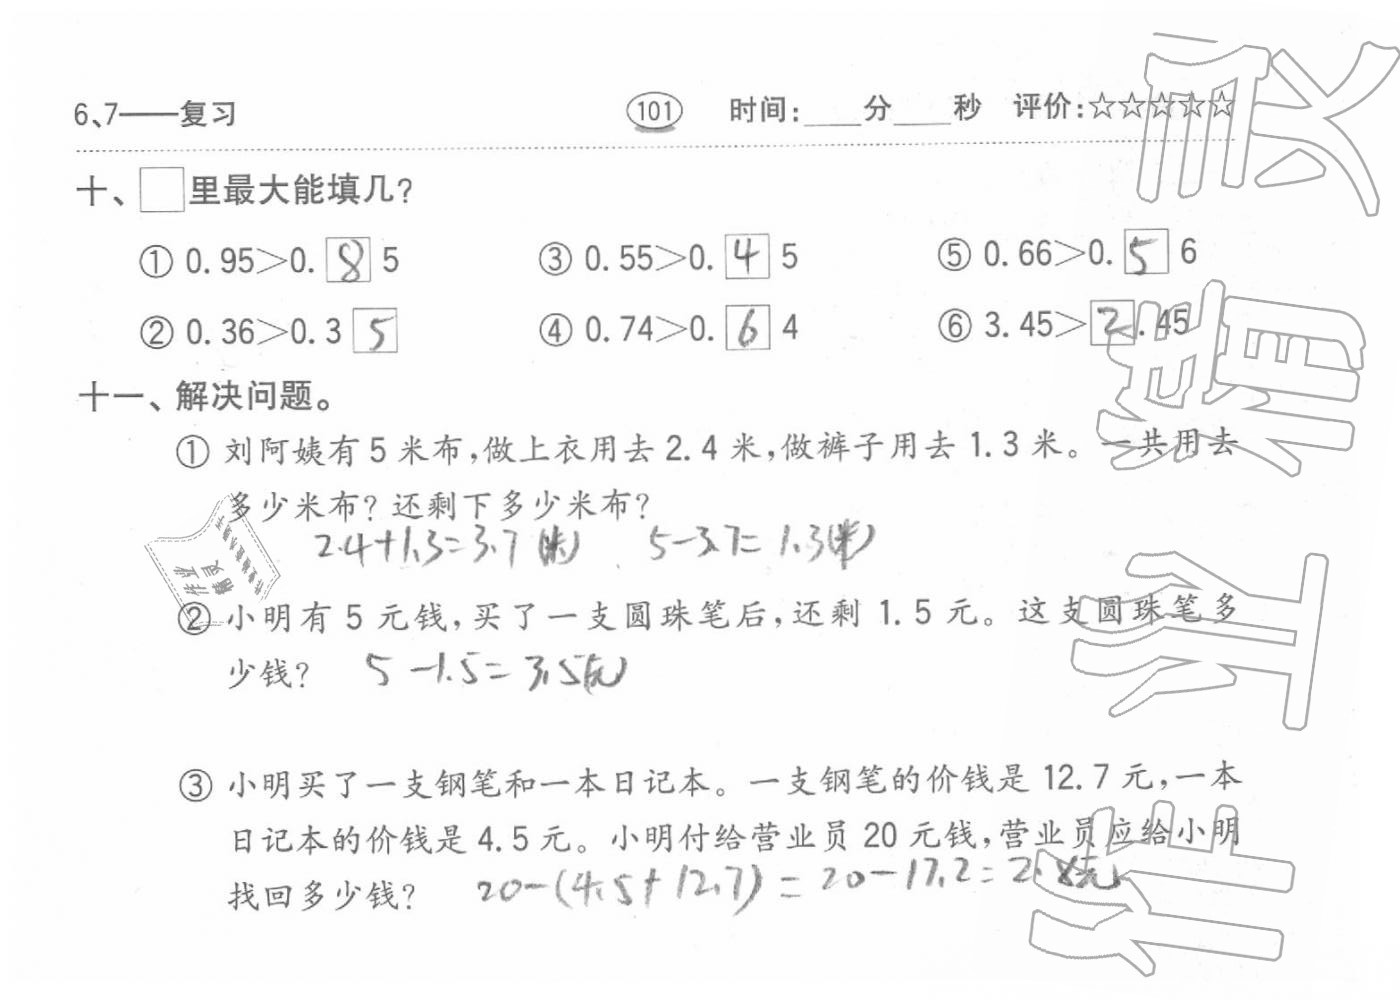 6、7——复习 101 时间:____分____秒 评价:☆☆☆☆☆
十、□里最大能填几?
① 0.95>0.8 5 ③ 0.55>0.4 5 ⑤ 0.66>0.5 6
② 0.36>0.3 5 ④ 0.74>0.6 4 ⑥ 3.45>2.45
十一、解决问题。
① 刘阿姨有5米布,做上衣用去2.4米,做裤子用去1.3米。一共用去
多少米布?还剩下多少米布?
2.4+1.3=3.7(米) 5-3.7=1.3(米)
作业
精灵
② 小明有5元钱,买了一支圆珠笔后,还剩1.5元。这支圆珠笔多
少钱? 5-1.5=3.5(元)
③ 小明买了一支钢笔和一本日记本。一支钢笔的价钱是12.7元,一本
日记本的价钱是4.5元。小明付给营业员20元钱,营业员应给小明
找回多少钱? 20-(4.5+12.7)=20-17.2=2.8元
作业精灵